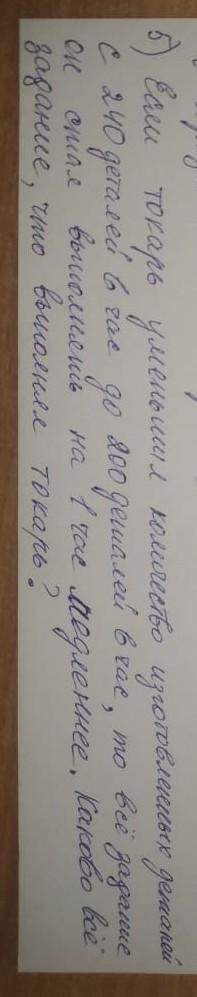 5) Если токарь уменьшил количество изготовленных деталей
с 240 деталей в час до 200 деталей в час, то всё задание
он стал выполнять на 1 час медленнее. Каково всё
задание, что выполнял токарь?